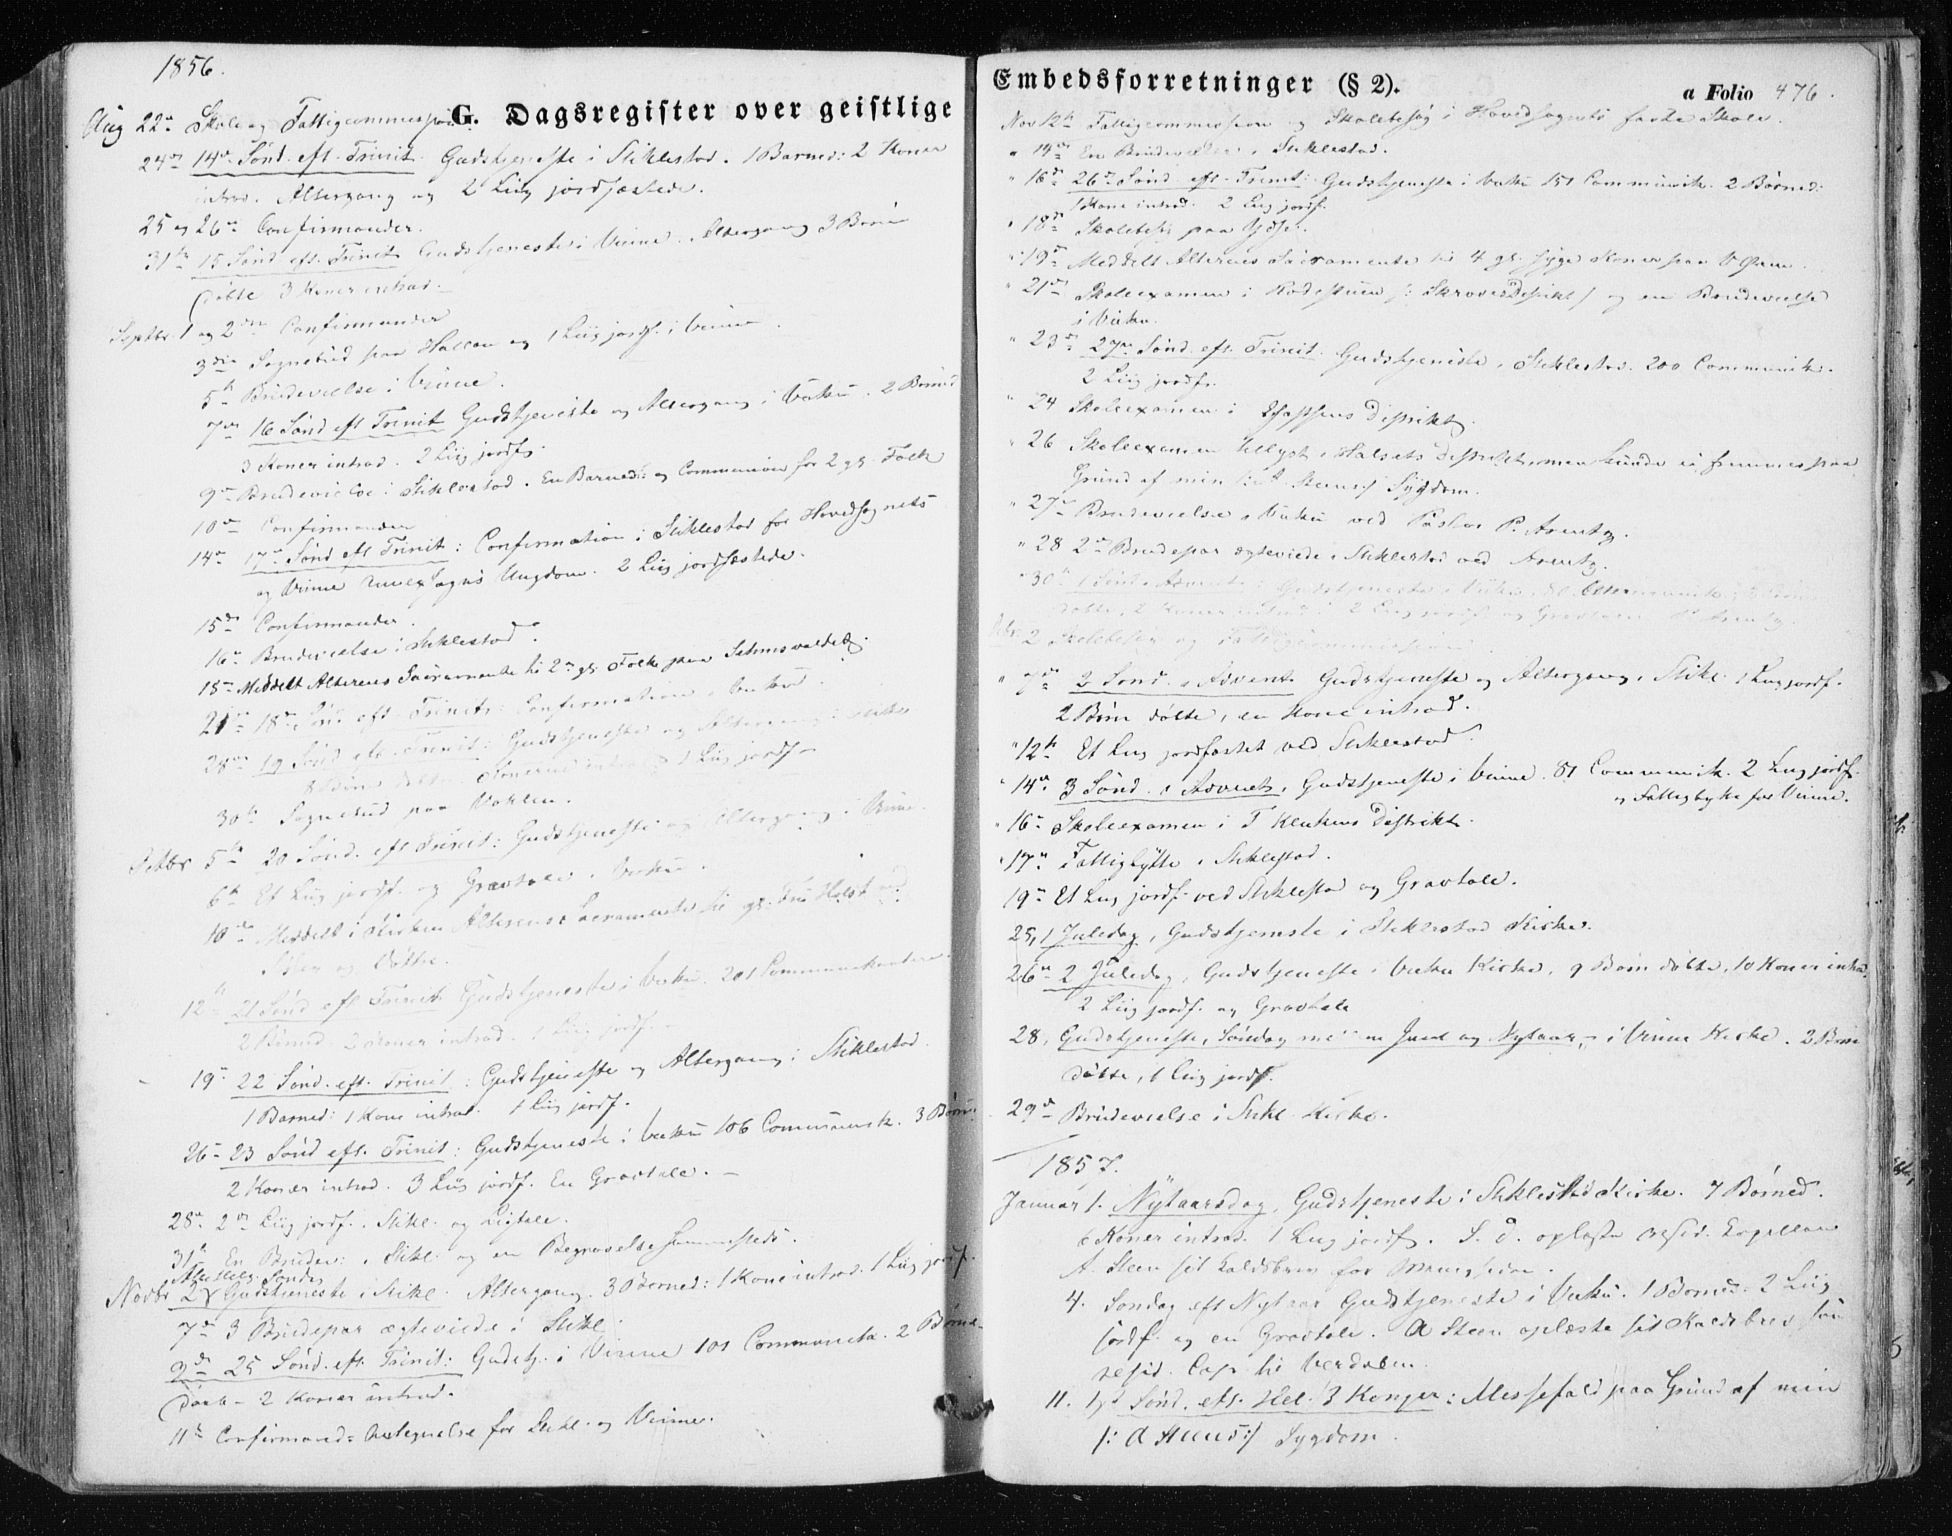 1856.
G. Dagsregister over geistlige
Aug 22de Skole og Fattigcommission
24de 14de Sønd. eft. Trinit. Gudstjeneste i Stiklestad. 1 Barned: 2 Koner
introd. Altergang og 2 Liig jordfæstede.
25 og 26de Confirmander.
31te 15 Sønd eft. Trinit. Gudstjeneste i Vinne. Altergang 3 Børn
døbte 3 Koner introd.
Septbr. 1 og 2den Confirmander
3die Sognebud paa Hallan og 1 Liig jordf. i Vinne.
5te Brudevielse i Vinne.
7de 16 Sønd eft Trinit Gudstjeneste og Altergang i Vuku. 2 Børned
3 Koner introd. 2 Liig jordf.
9de Brudevielse i Stiklestad. En Barned: og Communion for 2 gl. Folk
10de Confirmander
14de 17de Sønd eft Trinit: Confirmation i Stiklestad for Hovedsognets
og Vinne Sogns Ungdom. 2 Liig jordfæstede.
15de Confirmander.
16de Brudevielse i Stiklestad.
18de Meddelt Alterens Sacramente til 2de gl. Folk paa
21de 18de Sønd eft Trinit: Confirmation i Vuku.
28de 19 Sønd eft. Trinit: Gudstjeneste og Altergang i Stikl
Børn døbte. Konerne introd 1 Liig jordf.
30te Sognebud paa
Octbr 5te 20 Sønd. eft Trinit: Gudstjeneste og Altergang i Vinne.
6te Et Liig jordf. og Gravtale i Vuku.
10de Meddelt i Kirken Alterens Sacramente til gl. Fru Holst
og Døttre.
12te 21 Sønd eft Trinit Gudstjeneste i Vuku. 201 Communikanter
2 Børned. 2 Koner introd. 1 Liig jordf.
19de 22 Sønd. eft. Trinit: Gudstjeneste og Altergang i Stiklestad.
1 Barned: 1 Kone introd. 1 Liig jordf.
26de 23 Sønd eft. Trinit: Gudstjeneste i Vuku 106 Communik. 3 Børn
2 Koner introd. 3 Liig jordf. En Gravtale.
28de 2de Liig jordf. i Stikl. og Ligtale.
31te En Brudev: i Stikl. og en Begravelse sammesteds.
Allehelg. Søndag
Novbr 2 Gudstjeneste i Stikl. Altergang. 3 Børned: 1 Kone introd. 1 Liig jordf.
7de 3 Brudepar ægteviede i Stikl.
9de 25 Sønd. eft. Trinit: Gudstj. i Vinne 101 Communik. 2 Børn
døbt - 2 Koner introd.
11te Confirmand- Antegnelse for Stikl. og Vinne.
Embedsforretninger (§ 2).
a Folio 476.
Nov 12te Fattigcommission og Skolebesøg i Hovedsognets faste Skole.
" 14de En Brudevielse i Stiklestad.
" 16de 26de Sønd. eft. Trinit: Gudstjeneste i Vuku 151 Communik. 2 Børned:
1 Kone introd. 2 Liig jordf.
" 18de Skolebesøg paa
" 19de Meddelt Alterens Sacramente til 4 gl. syge Koner paa
" 21de Skoleexamen i /: Skroves District/ og en Brudevielse
i Vuku.
" 23de 27de Sønd. eft. Trinit: Gudstjeneste i Stiklestad. 200 Communik.
2 Liig jordf.
" 24 Skoleexamen i District.
" 26 Skoleexamen tillyst i Halsets District, men kunde ei fremmes paa
Grund af min Steens/ Sygdom.
" 27de Brudevielse i Vuku ved Pastor P. Arentz.
" 28 2de Brudepar ægteviede i Stiklestad ved Arentz.
" 30te 1 Sønd i Advent: Gudstjeneste i Vuku, 80 Communik.
døbte, 2 Koner introd. 2 Liig jordf. og Gravtale P. Arentz.
Dbr. 2 Skolebesøg og Fattigcommission
" 7de 2 Sønd. i Advent. Gudstjeneste og Altergang i Stikl. 1 Liig jordf.
2 Børn døbte, en Kone introd.
" 12te Et Liig jordfæstet ved Stiklestad.
" 14de 3 Sønd. i Advent, Gudstjeneste i Vinne. 81 Communik. 2 Liig jordf.
og Fattigbytte for Vinne.
" 16de Skoleexamen i District.
" 17de Fattigbytte i Stiklestad.
19de Et Liig jordf. ved Stiklestad og Gravtale.
25, 1 Juledag, Gudstjeneste i Stiklestad Kirke.
26de 2 Juledag, Gudstjeneste i Vuku Kirke, 9 Børn døbte, 10 Koner introd.
2 Liig jordf. og Gravtale
28, Gudstjeneste, Søndag mellem Juul og Nytaar, - i Vinne Kirke. 2 Børn
døbte, 1 Liig jordf.
29de Brudevielse i Stikl. Kirke.
1857.
Januar 1. Nytaarsdag, Gudstjeneste i Stiklestad Kirke. 7 Børned.
6 Koner introd. 1 Liig jordf. S. d. oplæste resid. Capellan
A. Steen sit Kaldsbrev for Menigheden.
4. Søndag eft Nytaar Gudstjeneste i Vuku. 1 Barned: 2 Liig
jordf. og en Gravtale. A Steen oplæste sit Kaldsbrev som
resid. Cap. til Verdalen.
11. 1ste Sønd. eft. Hel. 3 Konger: Messefald paa Grund af min
/: A Steens :/ Sygdom.